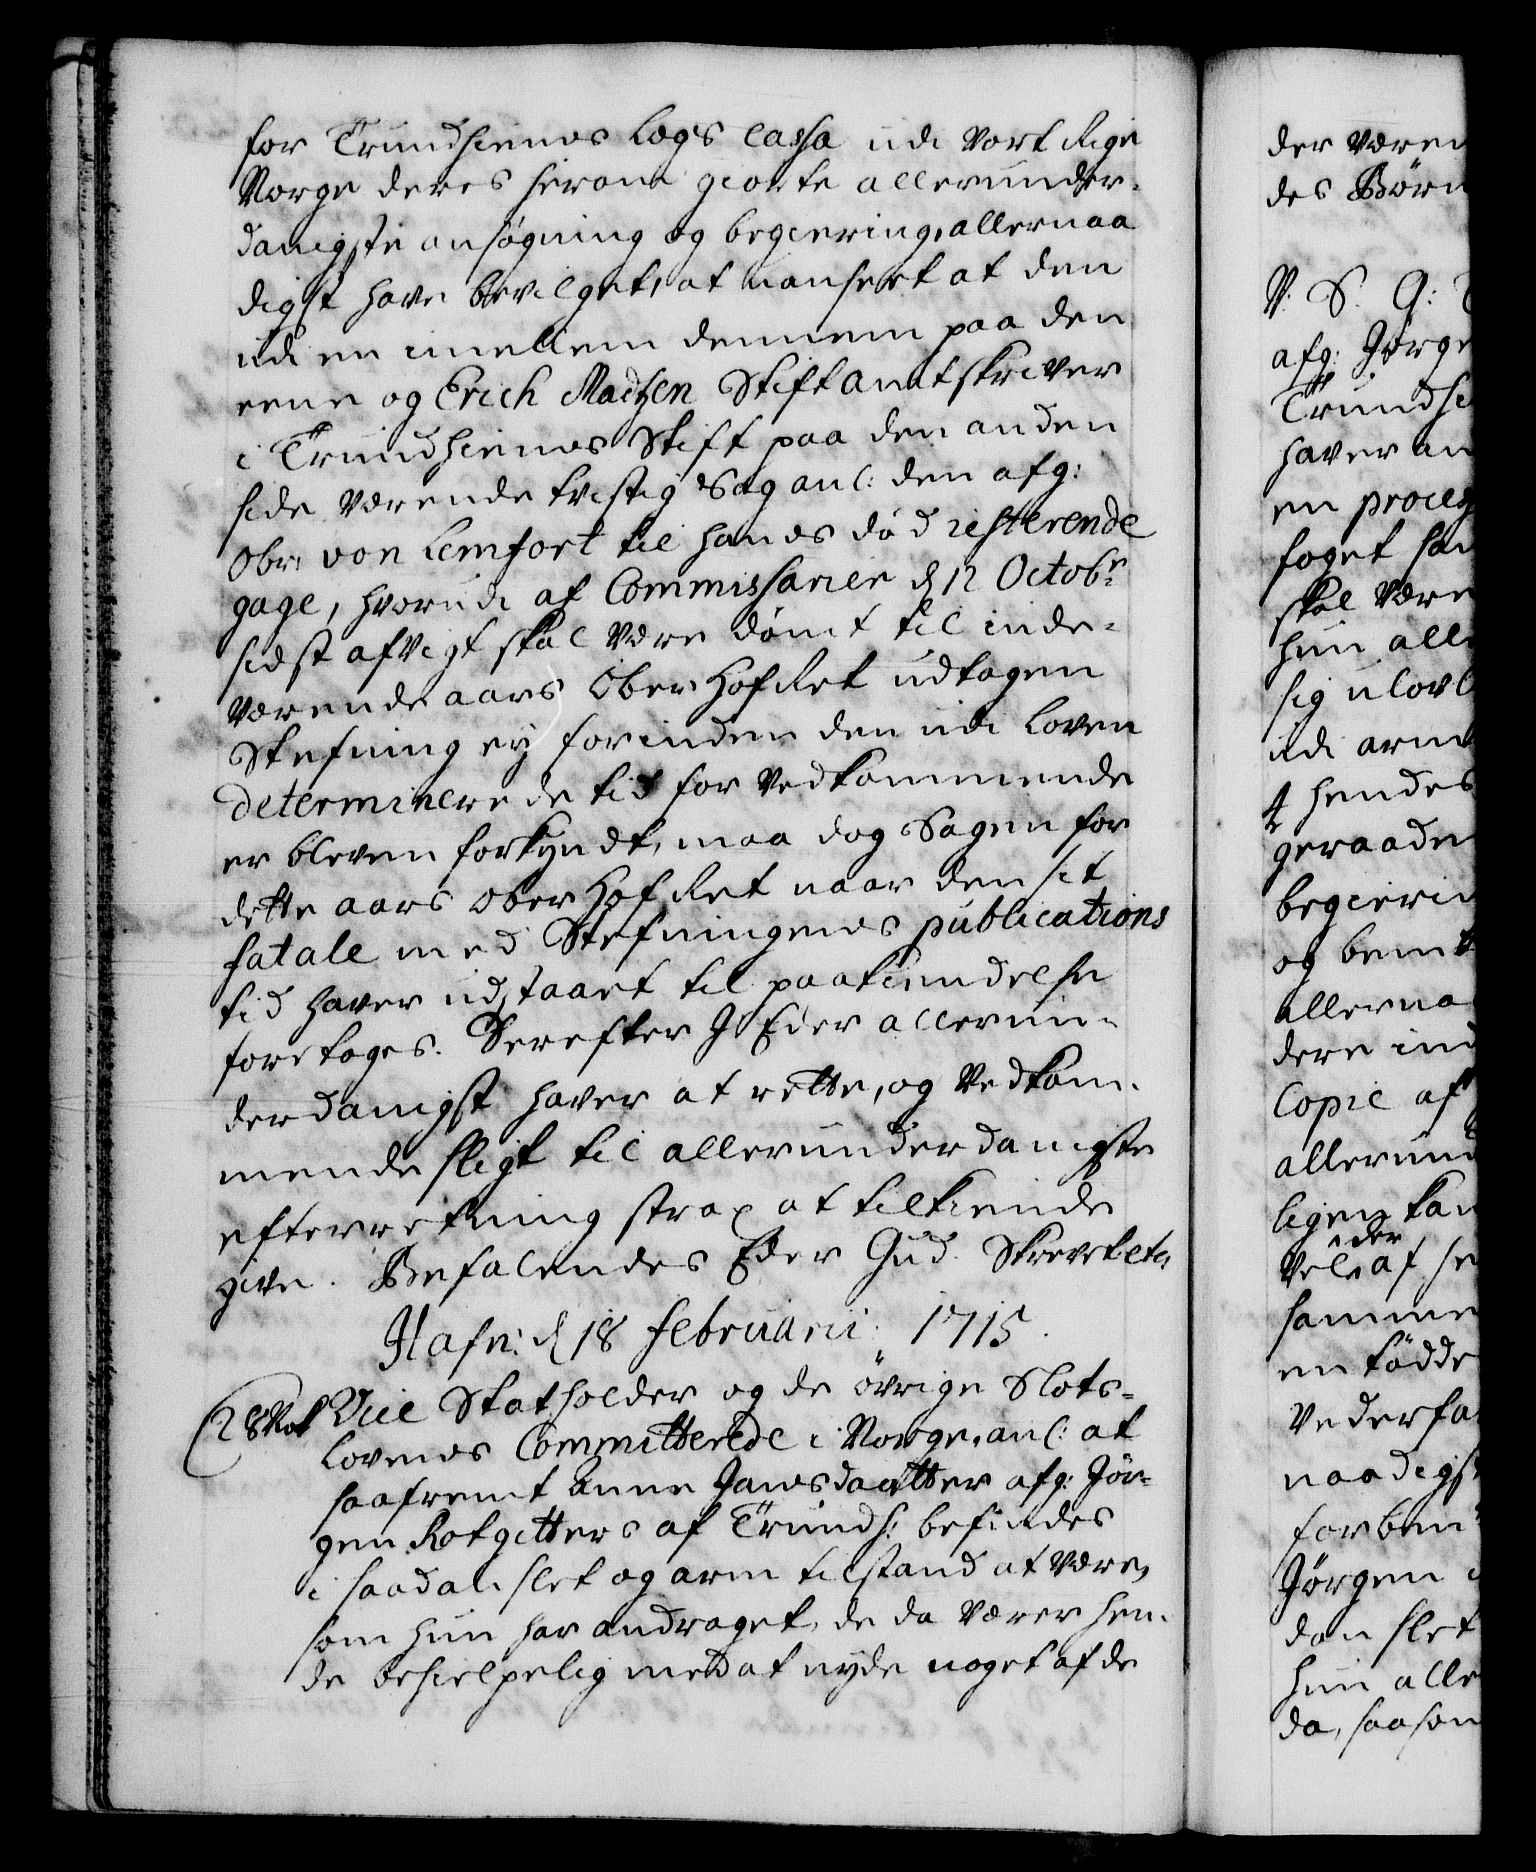 for Trundhiems Lægs Cassa udi Vort Rige
Norge deres herom giorte allerunder-
danigste ansøgning og begiering, allernaa
digst have bevilget, at uanseet at den
udi en imellem dennem paa den
eene og Erich Madtzen Stiftamtskriver
i Trundhiems Stift paa den anden
side værende tvistig Sag anl: den afg:
Obr: von Lemfort til hands død resterende
gage, hvorudi af Commissarier d 12 Octobr:
sidst afvigt skal være dømt til inde-
værende aars Ober Hof Ret udtagen
Stefning ey forinden den udi Loven
determinerede tid for Vedkommende
er bleven forkyndt, maa dog Sagen for
dette aars Ober Hof Ret naar den sit
fatale med Stefningens publications
tid haver udstaaet til paakiendelse
foretages. Derefter I Eder allerun-
derdanigst haver at rette, og Vedkom-
mende sligt til allerunderdanigste
efterretning strax at tilkiende
give. Befalendes Eder Gud. Skrevet etc
Hafn: d 18 Februarii: 1715.
28 Not Vice Statholder og de øvrige Slots-
Lovens Committerede i Norge, anl: at
saafremt Anne Jansdaatter afg: Jør-
gen Rotgetters af Trundh: befindes
i saadan slet og arm tilstand at være,
som hun har andraget, de da værer hen-
de behielpelig med at nyde noget af de
der væren
des Børn
V: S. G:
afg: Jørge
Trundhi
haver an
en proces
foget han
skal være
hun alle
sig ulovl
udi arm
hendes
geraade
begierin
og bemt
allerna
dere ind
Copie af
allerund
ligen kan
eder
Vel af se
samme
en fødde
Vederfa
naadigst
forben
Jørgen
dan slet
hun alle
da, saasom